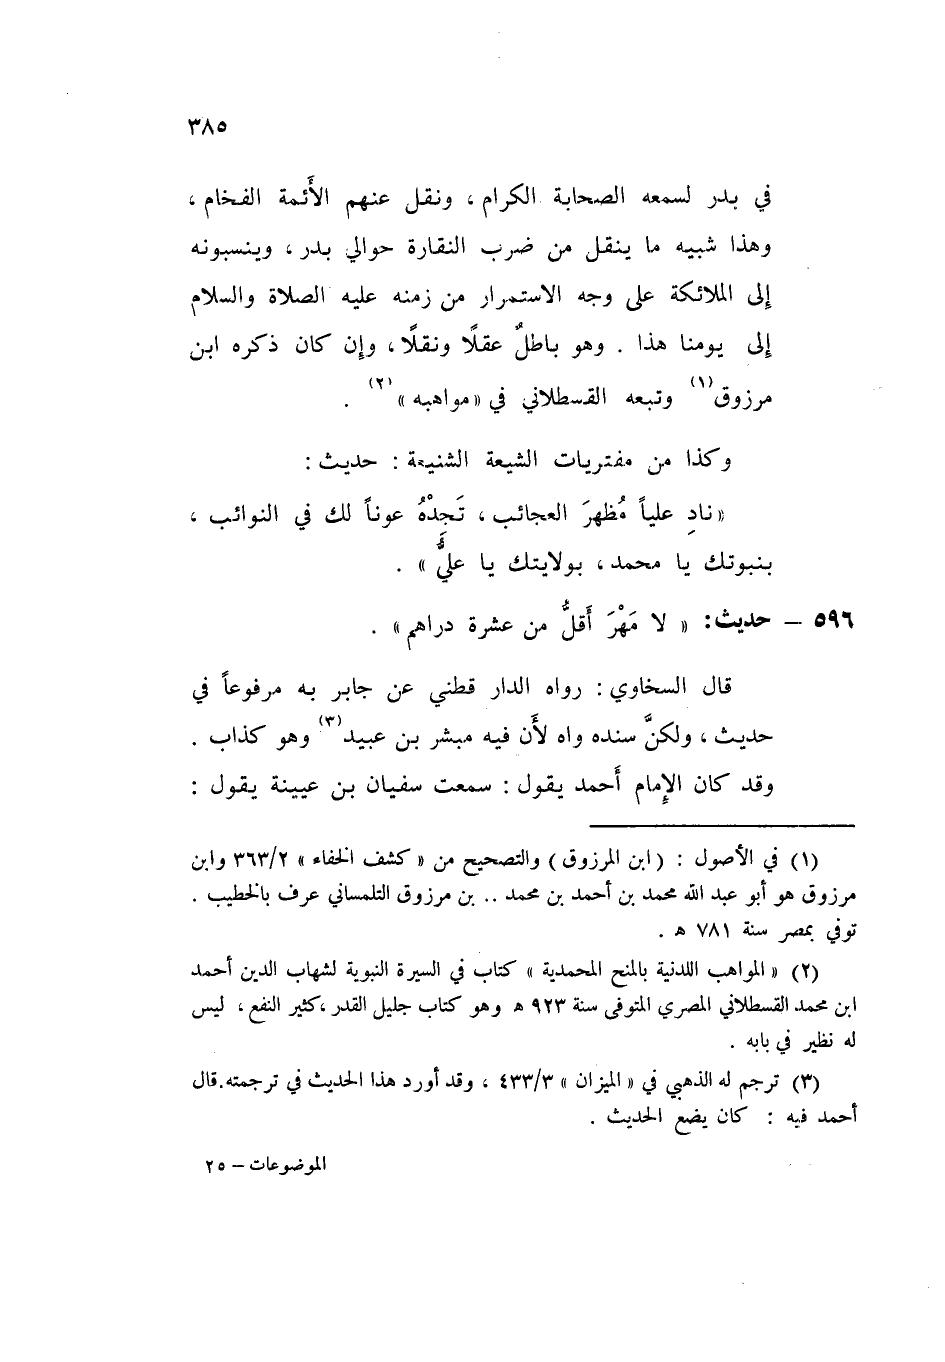 ٣٨٥
في بدر لسمعه الصحابة الكرام ، ونقل عنهم الأَئمة الفخام ،
وهذا شبيه ما ينقل من ضرب النقارة حوالي بدر ، وينسبونه
إلى الملائكة على وجه الاستمرار من زمنه عليه الصلاة والسلام
إلى يومنا هذا . وهو باطلٌ عقلًا ونقلًا ، وإن كان ذكره ابن
مرزوق(١) وتبعه القسطلاني في «مواهبه»(٢) .
وكذا من مفتريات الشيعة الشنيعة : حديث :
«نادِ علياً مُظهرَ العجائب ، تَجِدْهُ عوناً لك في النوائب ،
بنبوتك يا محمد ، بولايتك يا عليُّ» .
٥٩٦ – حديث: « لا مَهْرَ أَقلُّ من عشرة دراهم» .
قال السخاوي : رواه الدار قطني عن جابر به مرفوعاً في
حديث ، ولكنَّ سنده واه لأَن فيه مبشر بن عبيد(٣) وهو كذاب .
وقد كان الإِمام أَحمد يقول : سمعت سفيان بن عيينة يقول :
(١) في الأصول : ( ابن المرزوق ) والتصحيح من « كشف الخفاء » ٣٦٣/٢ وابن
مرزوق هو أبو عبد الله محمد بن أحمد بن محمد .. بن مرزوق التلمساني عرف بالخطيب .
توفي بمصر سنة ٧٨١ ه .
(٢) « المواهب اللدنية بالمنح المحمدية » كتاب في السيرة النبوية لشهاب الدين أحمد
ابن محمد القسطلاني المصري المتوفى سنة ٩٢٣ ه وهو كتاب جليل القدر ،كثير النفع ، ليس
له نظير في بابه .
(٣) ترجم له الذهبي في « الميزان » ٤٣٣/٣ ، وقد أورد هذا الحديث في ترجمته.قال
أحمد فيه : كان يضع الحديث .
الموضوعات – ٢٥